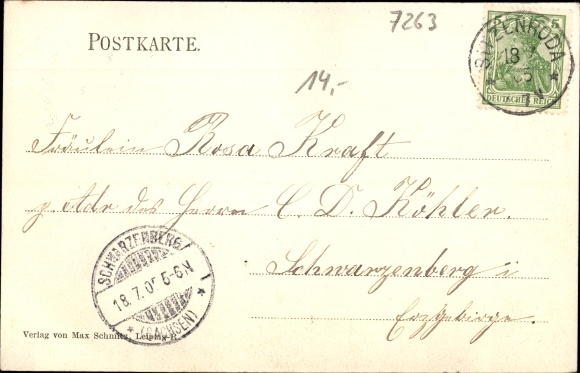 7263
POSTKARTE.
14,-
5 5
DEUTSCHES REICH
SITZENRODA
18
Fräulein Rosa Kraft
p. Adr. des Herrn C. D. Köhler.
Schwarzenberg i
Erzgebirge.
SCHWARZENBERG
18.7.0 5-6N
(SACHSEN)
Verlag von Max Schmitz, Leipzig-R.